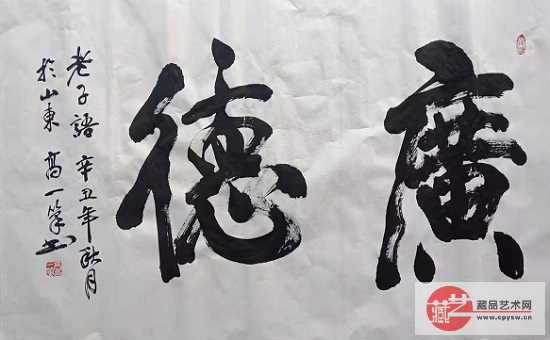 廣德
老子語 辛丑年秋月
於山東 高一峯書
藏艺
藏品艺术网
www.cpysw.cn